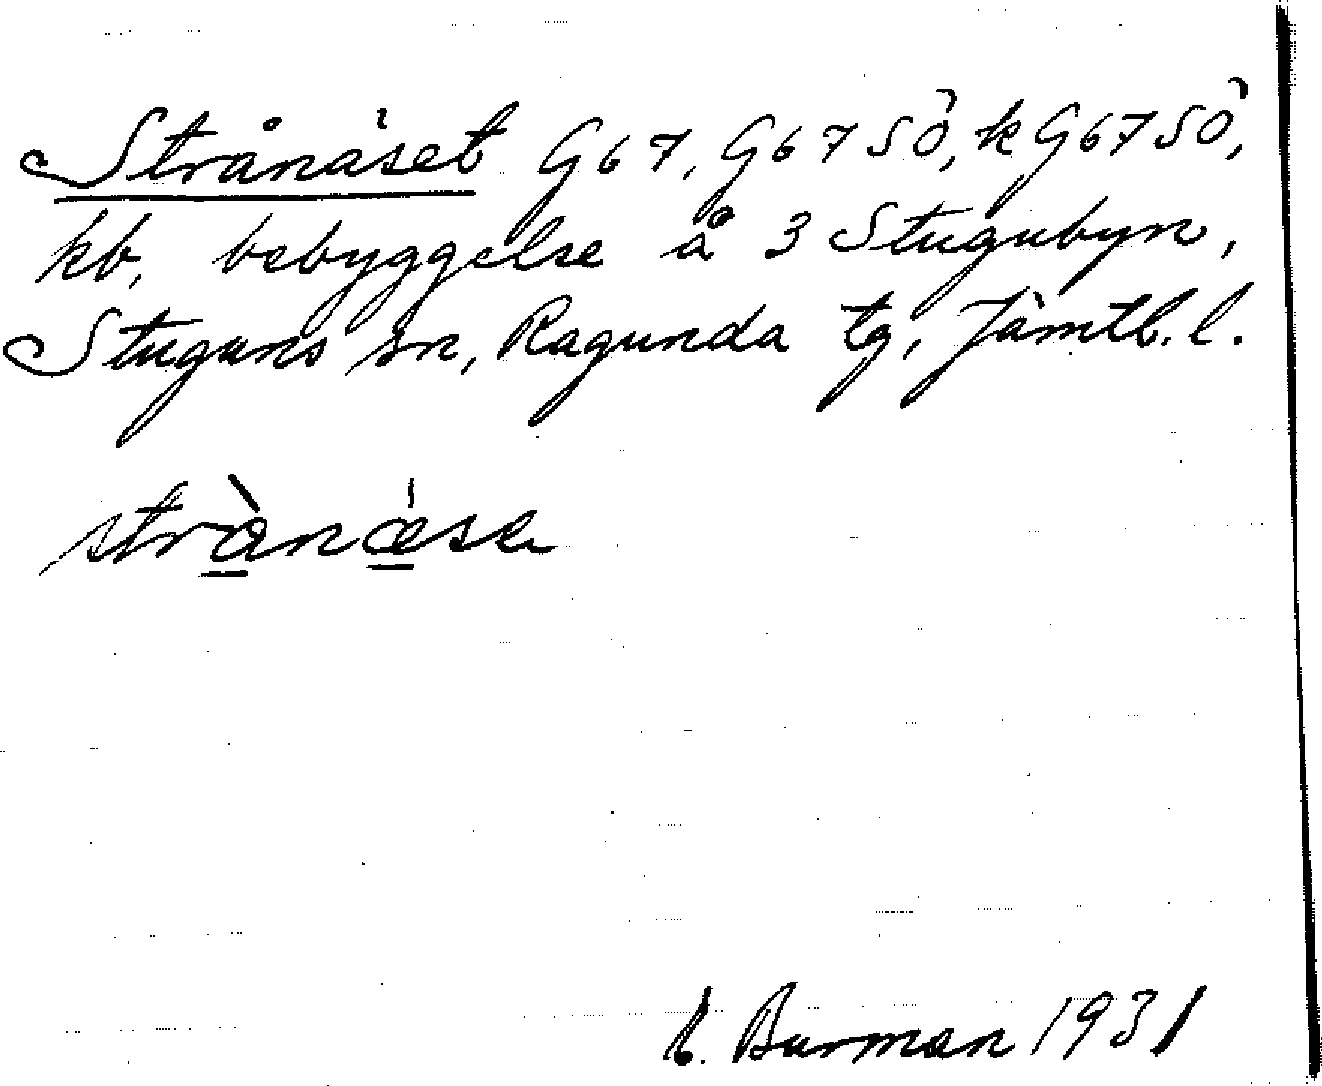 Strånäset G67, G67SÖ, kG67SÖ,
kb, bebyggelse å 3 Stugubyn,
Stuguns sn, Ragunda tg, Jämtl. l.
strànǽse
Burman 1931